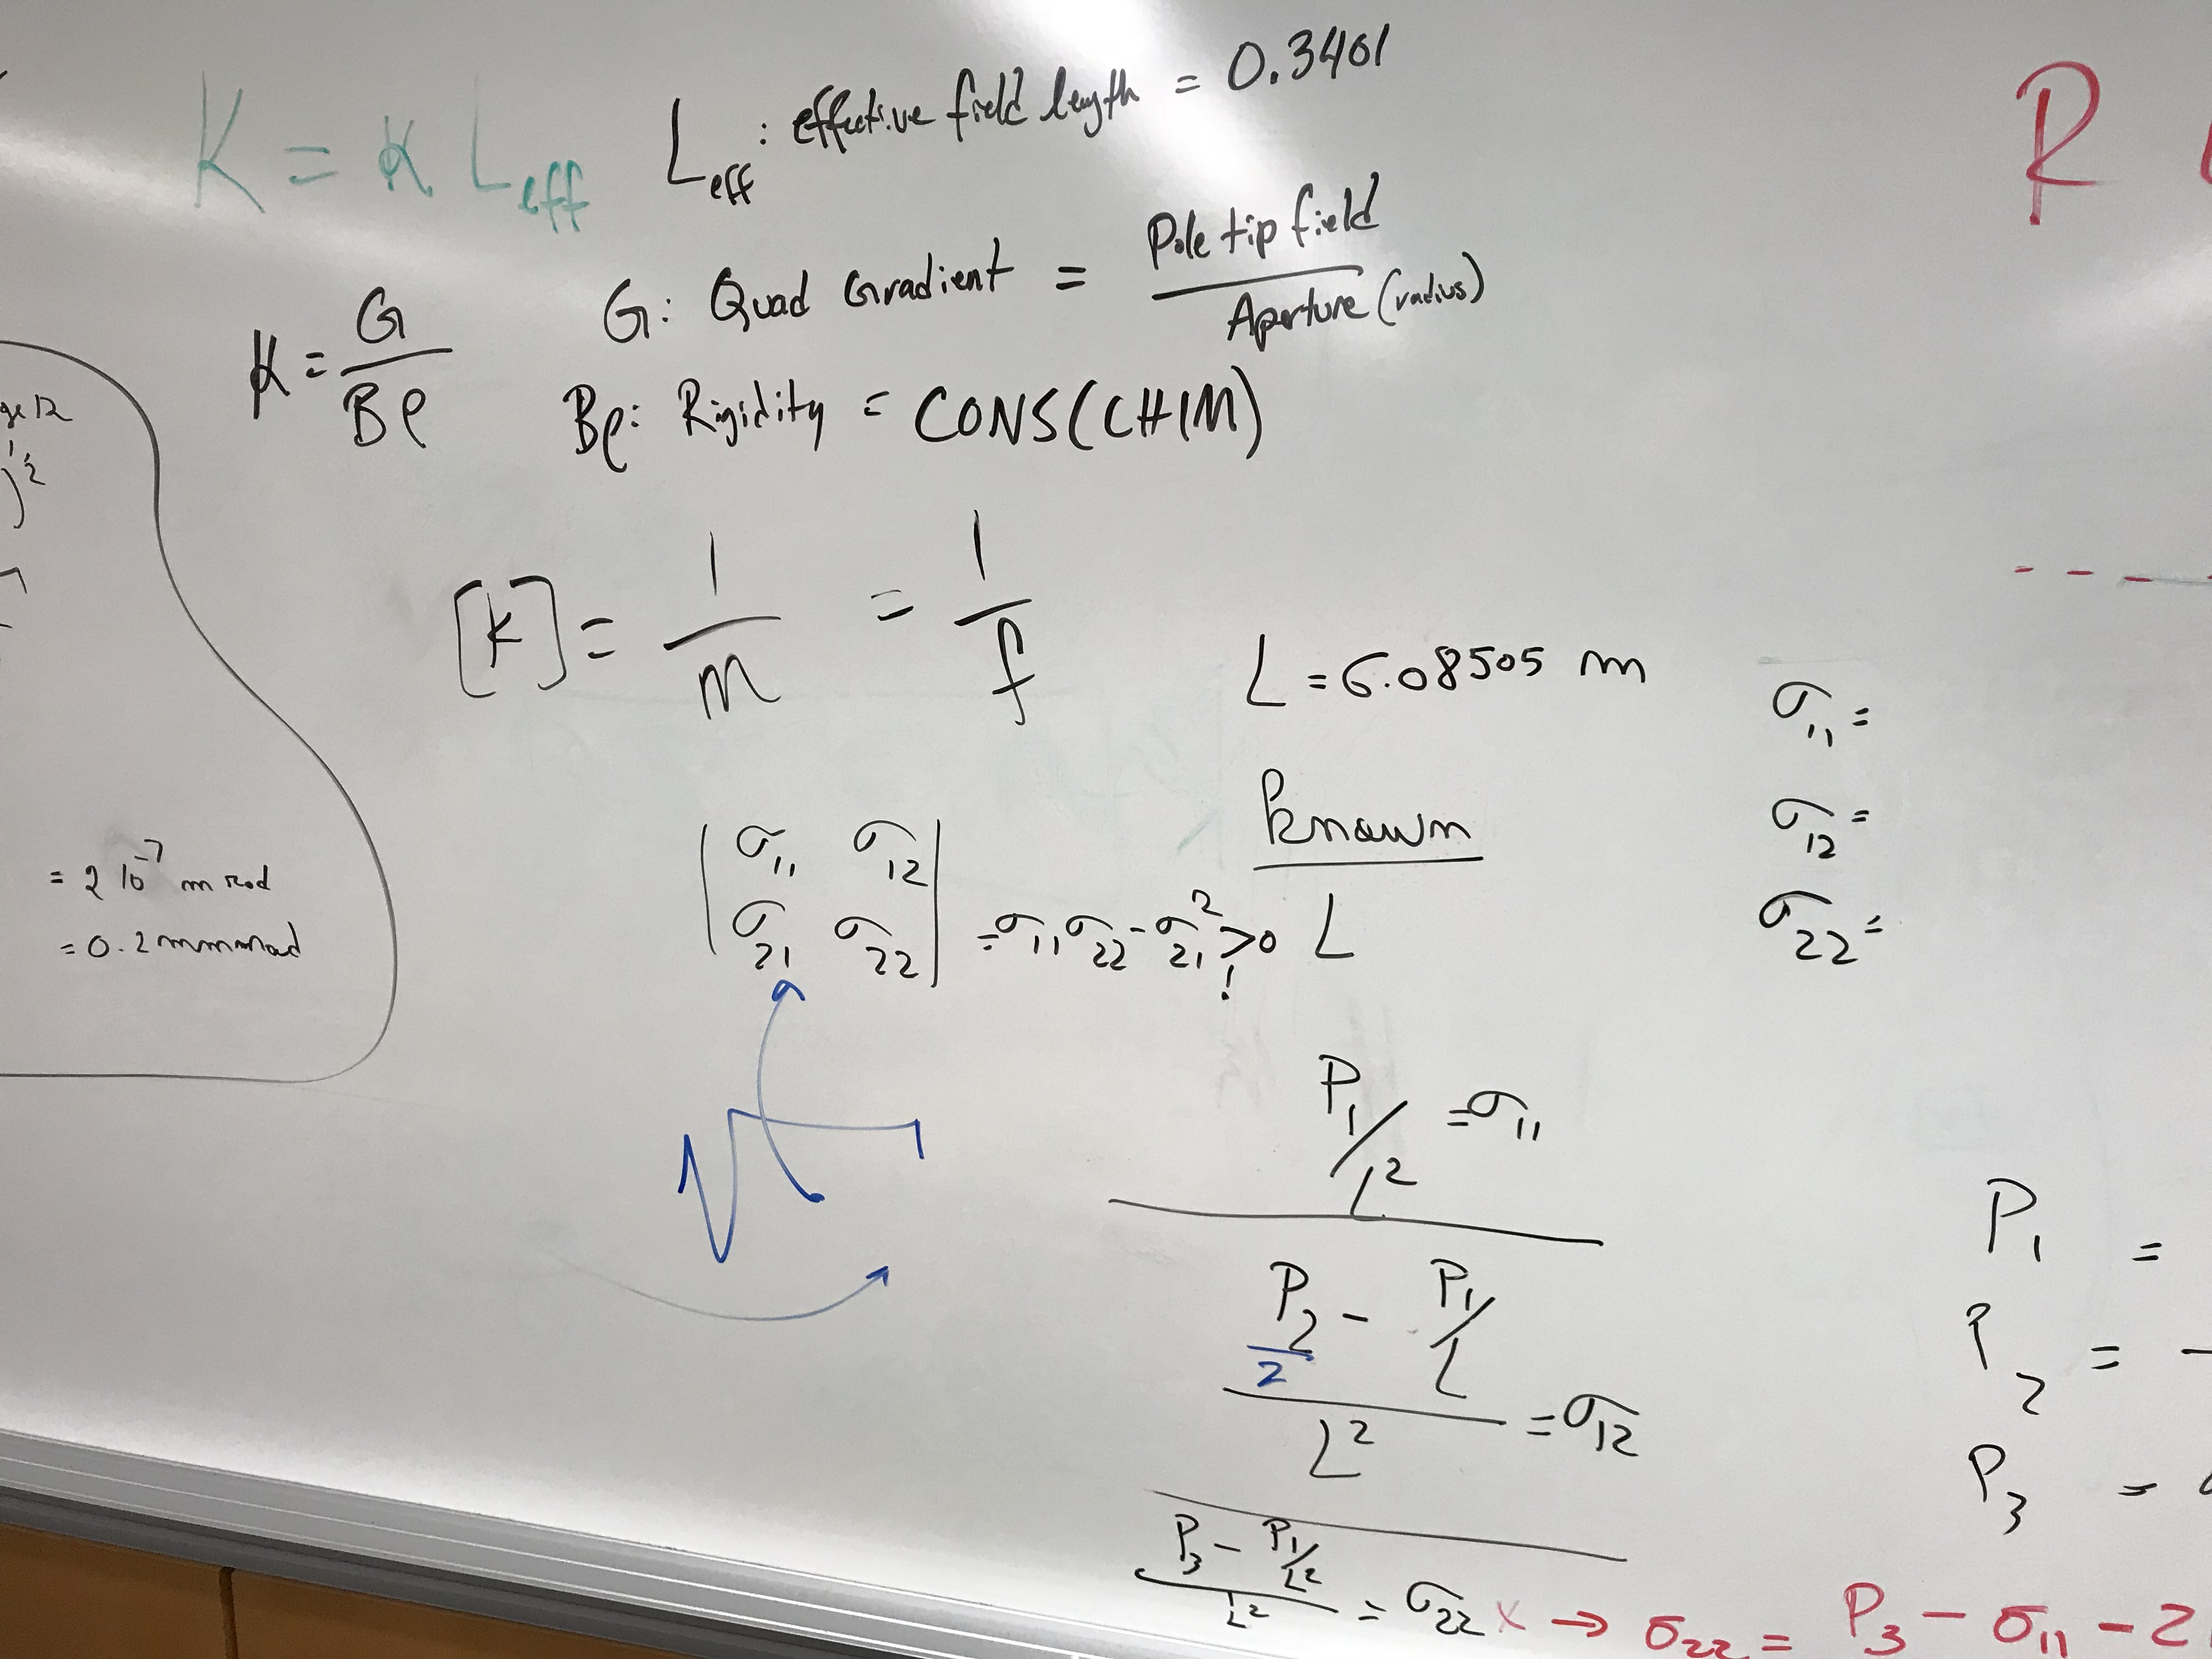 K = k L_eff
L_eff : effective field length = 0.3401
R
k = G / Bρ
G: Quad Gradient = Pole tip field / Aperture (radius)
Bρ: Rigidity = CONS(CHIM)
)^1/2
[k] = 1/m = 1/f
L = 6.08505 m
σ11 =
σ12 =
σ22 =
= 2 10^-7 m rad
| σ11 σ12 |
| σ21 σ22 | = σ11 σ22 - σ21^2 > 0 !
known
L
P1 / L^2 = σ11
(P2/2 - P1/L) / L^2 = σ12
(P3 - P1/L^2) / L^2 = σ22 x → σ22 = P3 - σ11 - 2
P1 =
P2 = -
P3 =